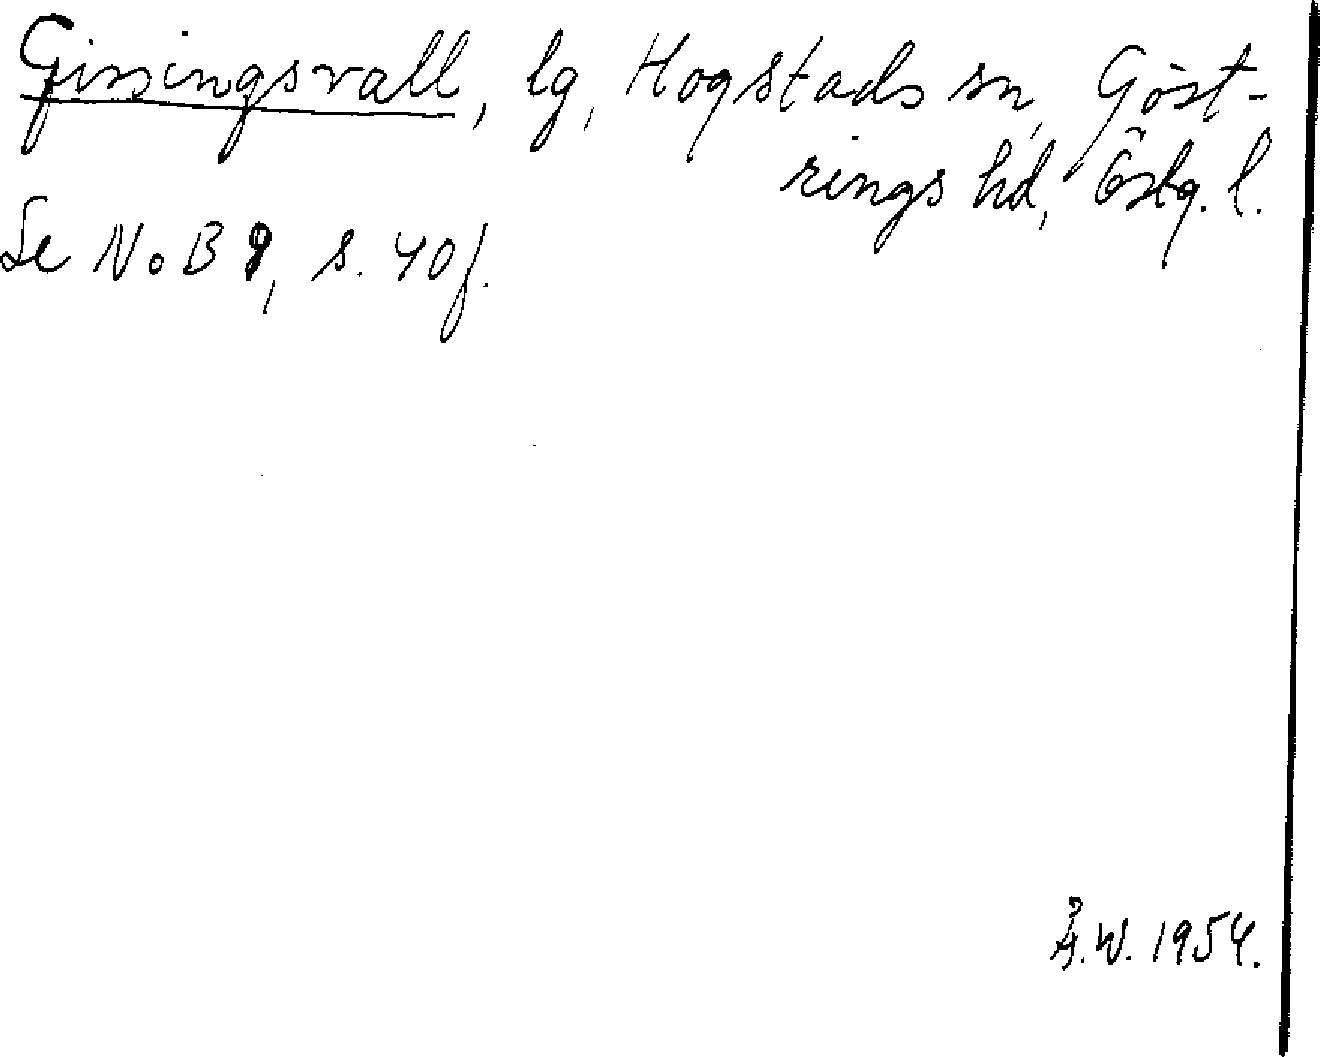 Gissingsvall, lg, Hogstads sn, Göst-
rings hd, Östg. l.
Se NoB 9, s. 40 f.
Å.W. 1954.